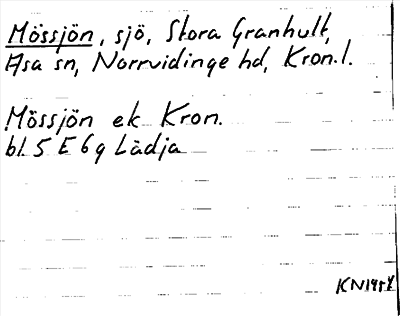 Mössjön, sjö, Stora Granhult,
Asa sn, Norrvidinge hd, Kron. l.
Mössjön ek Kron.
bl. 5 E 6 g Lädja